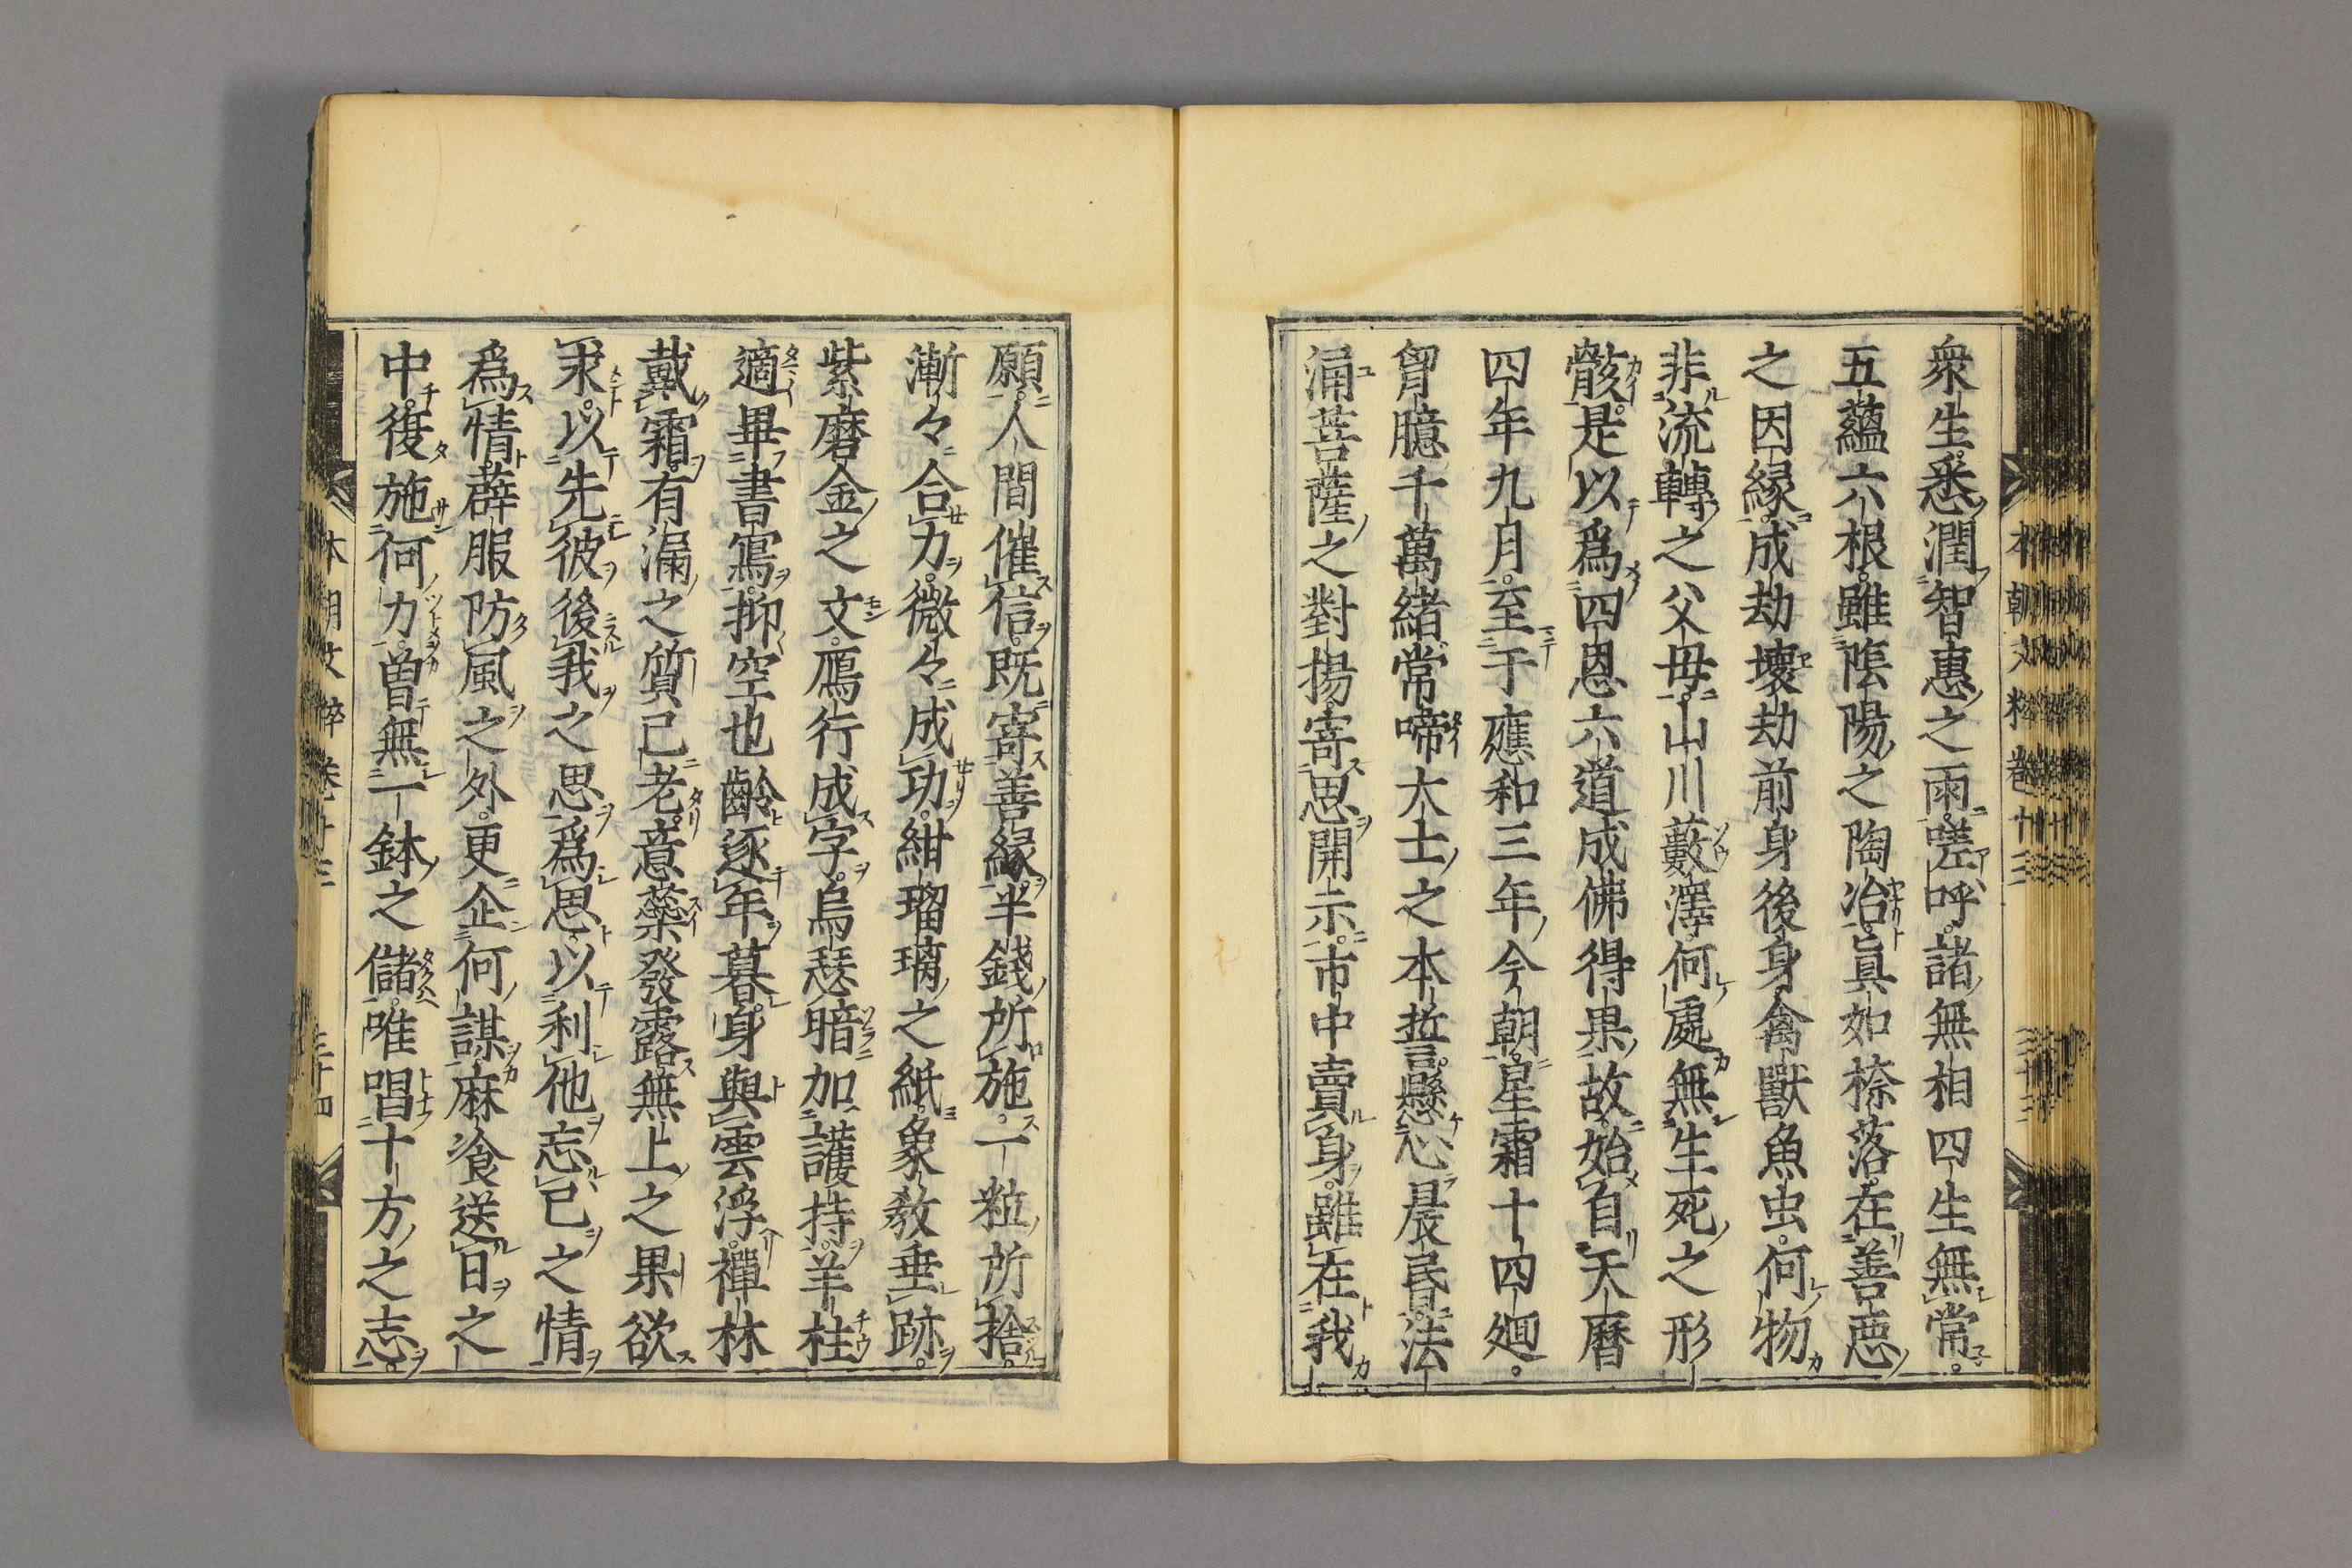 衆生悉潤智惠之雨嗟呼諸無相四生無常
五蘊六根雖陰陽之陶冶眞如㮈落在善惡
之因縁成劫壞劫前身後身禽獸魚虫何物
非流轉之父母山川藪澤何處無生死之形
骸是以爲四恩六道成佛得果故始自天曆
四年九月至于應和三年今朝星霜十四廻
胷臆千萬緒常啼大士之本誓懸心晨昏法
涌菩薩之對揚寄思開示市中賣身雖在我
願人間催信既寄善縁半錢所施一粒所捨
漸々合力微々成功紺瑠璃之紙象教垂跡
紫磨金之文鴈行成字烏瑟暗加護持羊柱
適畢書寫抑空也齡逐年暮身與雲浮禪林
戴霜有漏之質已老意蘂發露無上之果欲
求以先彼後我之思爲思以利他忘己之情
爲情薜服防風之外更企何謀麻飡送日之
中復施何力曽無一鉢之儲唯唱十方之志
本朝文粹卷十三
三十四